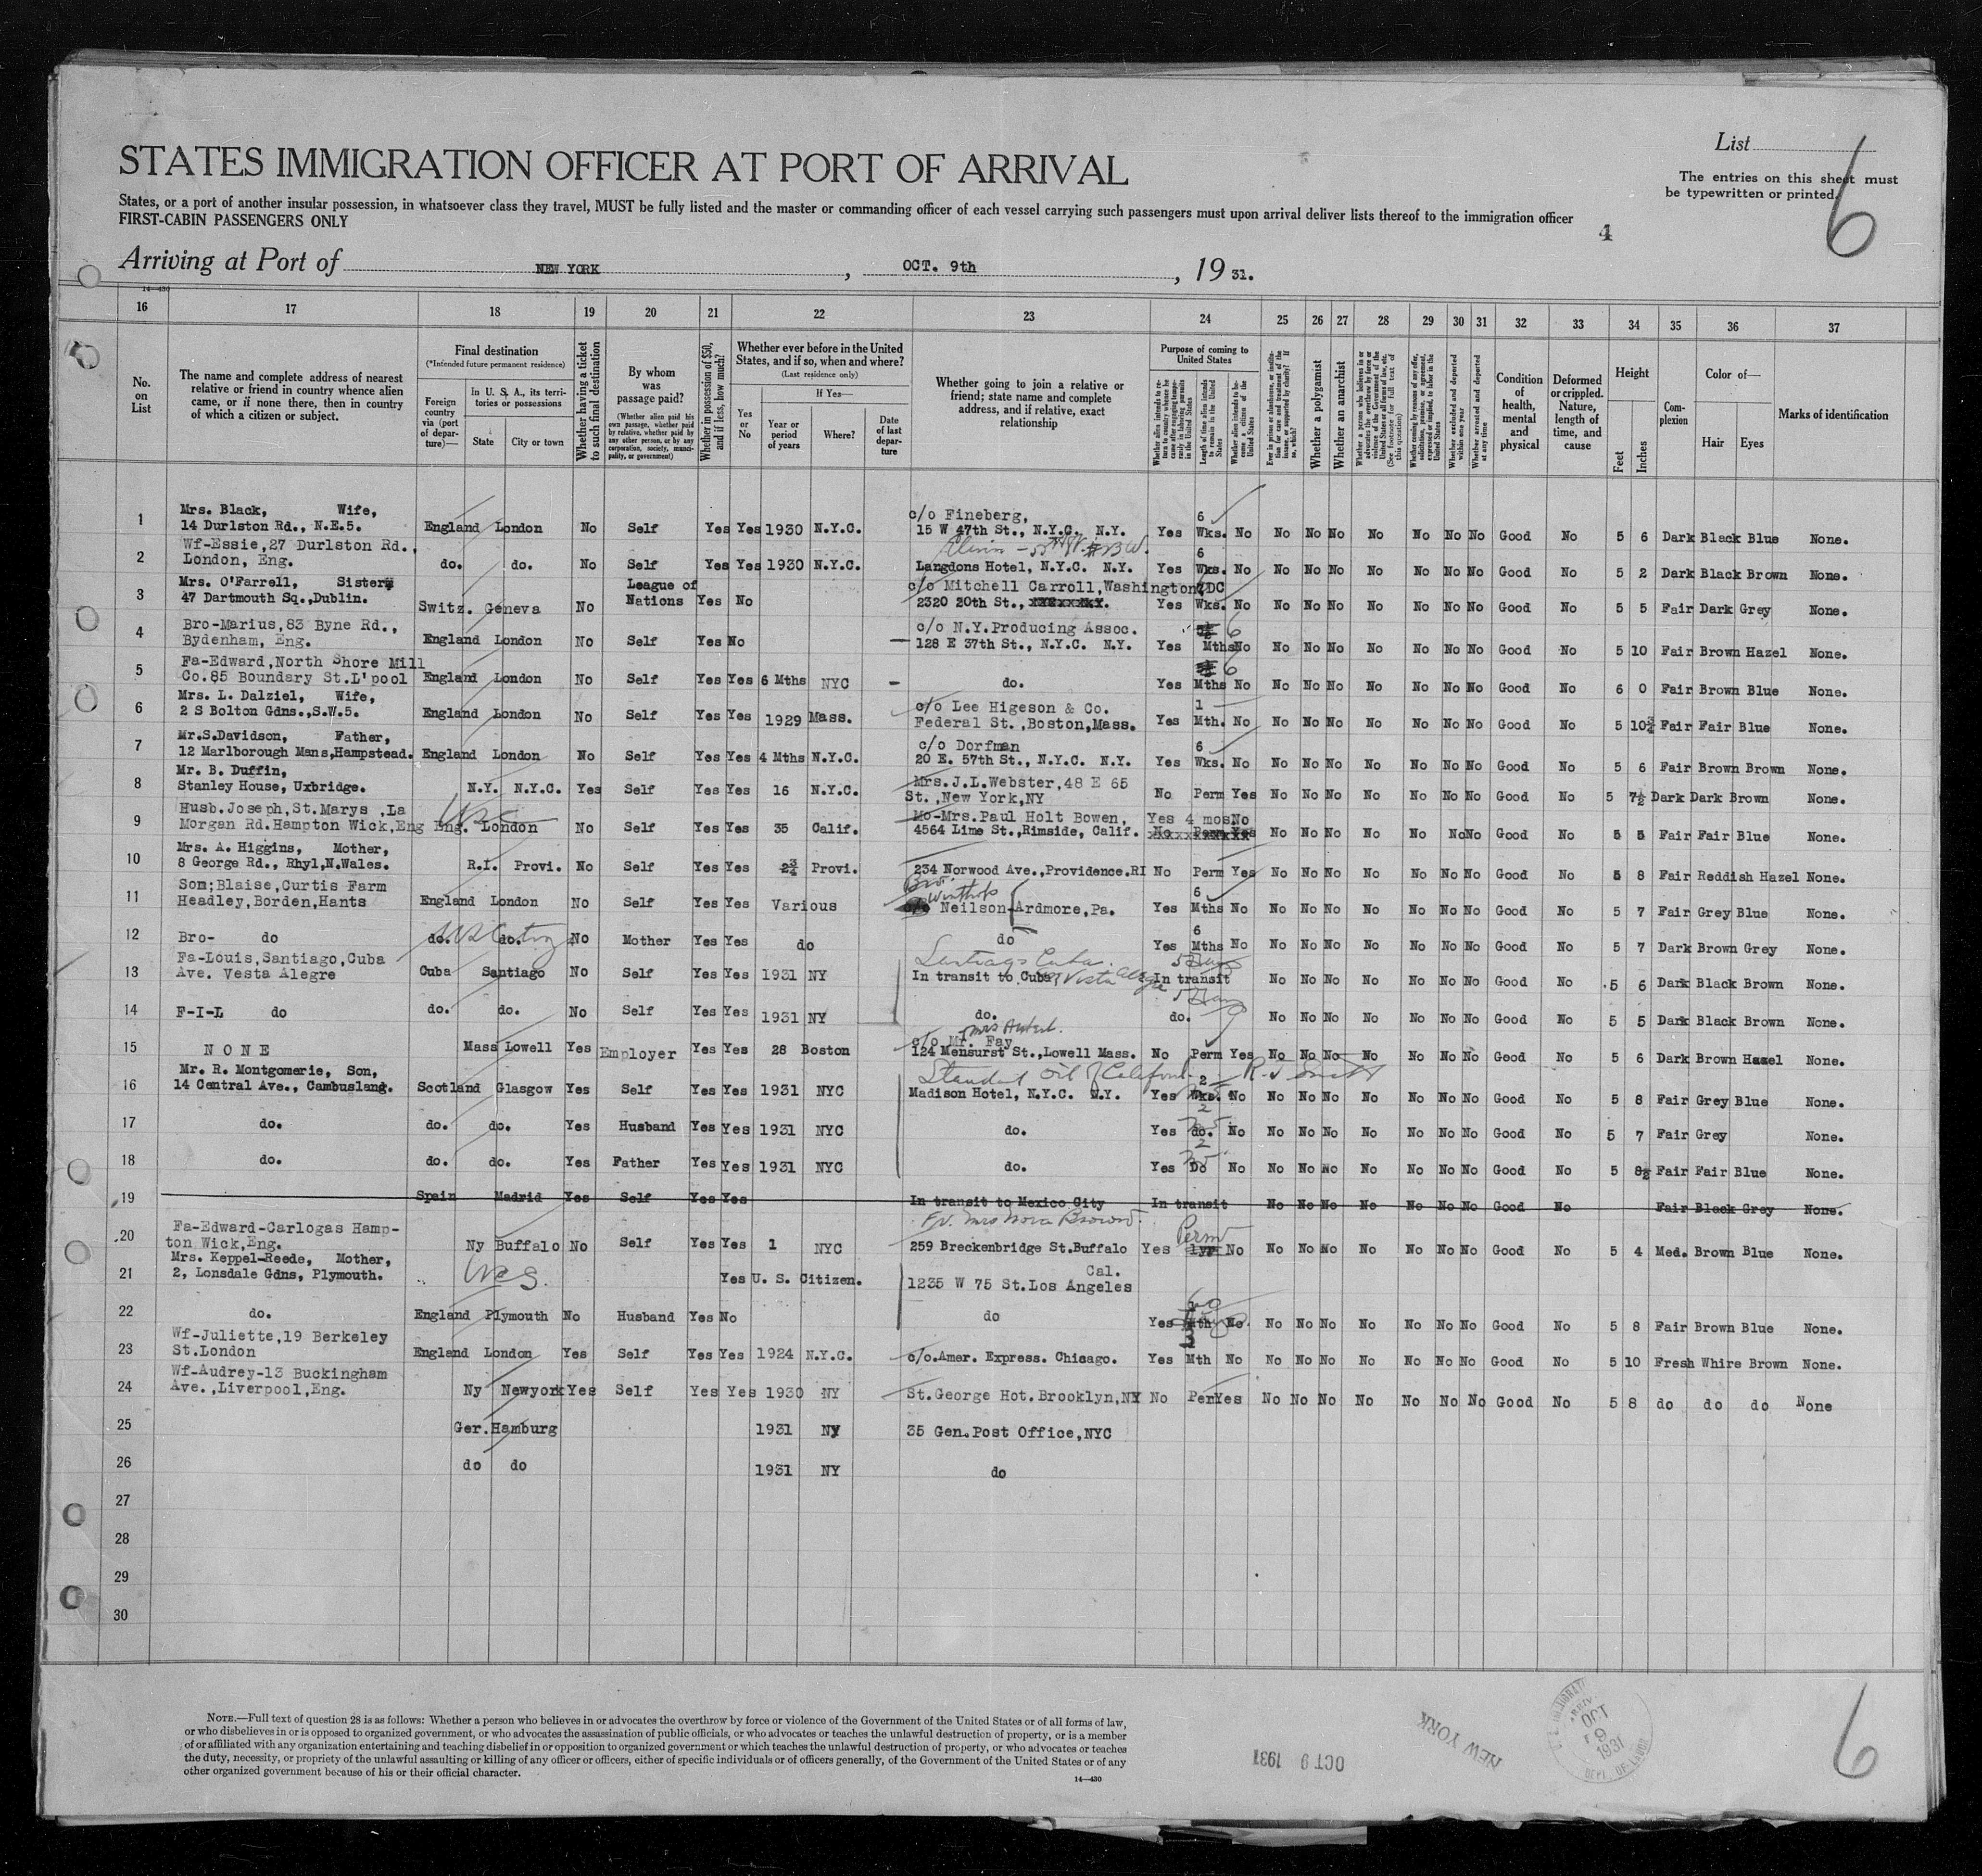 List
6
STATES IMMIGRATION OFFICER AT PORT OF ARRIVAL
The entries on this sheet must
be typewritten or printed.
States, or a port of another insular possession, in whatsoever class they travel, MUST be fully listed and the master or commanding officer of each vessel carrying such passengers must upon arrival deliver lists thereof to the immigration officer
FIRST-CABIN PASSENGERS ONLY
4
Arriving at Port of NEW YORK, OCT. 9th, 19 31.
14—430
16 17 18 19 20 21 22 23 24 25 26 27 28 29 30 31 32 33 34 35 36 37
No. on List
The name and complete address of nearest relative or friend in country whence alien came, or if none there, then in country of which a citizen or subject.
Final destination
(*Intended future permanent residence)
Foreign country via (port of departure)—
In U. S. A., its territories or possessions
State
City or town
Whether having a ticket to such final destination
By whom was passage paid?
(Whether alien paid his own passage, whether paid by relative, whether paid by any other person, or by any corporation, society, municipality, or government)
Whether in possession of $50, and if less, how much?
Whether ever before in the United States, and if so, when and where?
(Last residence only)
Yes or No
If Yes—
Year or period of years
Where?
Date of last departure
Whether going to join a relative or friend; state name and complete address, and if relative, exact relationship
Purpose of coming to United States
Length of time alien intends to remain in the United States
Whether alien intends to become a citizen of the United States
Whether a polygamist
Whether an anarchist
(See footnote for full text of this question)
Whether excluded and deported within one year
Whether arrested and deported at any time
Condition of health, mental and physical
Deformed or crippled. Nature, length of time, and cause
Height
Feet
Inches
Complexion
Color of—
Hair
Eyes
Marks of identification
1 Mrs. Black, Wife,
14 Durlston Rd., N.E.5. England London No Self Yes Yes 1930 N.Y.C. c/o Fineberg, 15 W 47th St., N.Y.C. N.Y. Yes 6 Wks. No No No No No No No No Good No 5 6 Dark Black Blue None.
2 Wf-Essie,27 Durlston Rd.,
London, Eng. do. do. No Self Yes Yes 1930 N.Y.C. Langdons Hotel, N.Y.C. N.Y. Yes 6 Wks. No No No No No No No No Good No 5 2 Dark Black Brown None.
3 Mrs. O'Farrell, Sister
47 Dartmouth Sq.,Dublin. Switz. Geneva No League of Nations Yes No c/o Mitchell Carroll,Washington,DC 2320 20th St., Yes Wks. No No No No No No No No Good No 5 5 Fair Dark Grey None.
4 Bro-Marius,83 Byne Rd.,
Bydenham, Eng. England London No Self Yes No — c/o N.Y.Producing Assoc. 128 E 37th St., N.Y.C. N.Y. Yes 6 Mths No No No No No No No No Good No 5 10 Fair Brown Hazel None.
5 Fa-Edward,North Shore Mill
Co.85 Boundary St.L'pool England London No Self Yes Yes 6 Mths NYC - do. Yes 6 Mths No No No No No No No No Good No 6 0 Fair Brown Blue None.
6 Mrs. L. Dalziel, Wife,
2 S Bolton Gdns.,S.W.5. England London No Self Yes Yes 1929 Mass. c/o Lee Higeson & Co. Federal St.,Boston,Mass. Yes 1 Mth. No No No No No No No No Good No 5 10¾ Fair Fair Blue None.
7 Mr.S.Davidson, Father,
12 Marlborough Mans,Hampstead. England London No Self Yes Yes 4 Mths N.Y.C. c/o Dorfman 20 E. 57th St., N.Y.C. N.Y. Yes 6 Wks. No No No No No No No No Good No 5 6 Fair Brown Brown None.
8 Mr. B. Duffin,
Stanley House, Uxbridge. N.Y. N.Y.C. Yes Self Yes Yes 16 N.Y.C. Mrs.J.L.Webster,48 E 65 St.,New York,NY No Perm Yes No No No No No No No Good No 5 7½ Dark Dark Brown None.
9 Husb.Joseph,St.Marys ,La
Morgan Rd.Hampton Wick,Eng Eng. London No Self Yes Yes 35 Calif. Mo-Mrs.Paul Holt Bowen, 4564 Lime St.,Rimside, Calif. Yes 4 mos No No Perm Yes No No No No No No No Good No 5 5 Fair Fair Blue None.
10 Mrs. A. Higgins, Mother,
8 George Rd., Rhyl,N.Wales. R.I. Provi. No Self Yes Yes 2¾ Provi. 234 Norwood Ave.,Providence.RI No Perm Yes No No No No No No No Good No 5 8 Fair Reddish Hazel None.
11 Son;Blaise,Curtis Farm
Headley,Borden,Hants England London No Self Yes Yes Various Bro. Winthrop Neilson-Ardmore,Pa. Yes 6 Mths No No No No No No No No Good No 5 7 Fair Grey Blue None.
12 Bro- do do. do. No Mother Yes Yes do do Yes 6 Mths No No No No No No No No Good No 5 7 Dark Brown Grey None.
13 Fa-Louis,Santiago,Cuba
Ave. Vesta Alegre Cuba Santiago No Self Yes Yes 1931 NY Santiago Cuba. In transit to Cuba, Vista Alegre In transit 5 Days No No No No No No No Good No 5 6 Dark Black Brown None.
14 F-I-L do do. do. No Self Yes Yes 1931 NY do. do. 5 Days No No No No No No No Good No 5 5 Dark Black Brown None.
15 NONE Mass Lowell Yes Employer Yes Yes 28 Boston c/o Mr. Fay 124 Mensurst St.,Lowell Mass. No Perm Yes No No No No No No No Good No 5 6 Dark Brown Hazel None.
16 Mr. R. Montgomerie, Son,
14 Central Ave., Cambuslang. Scotland Glasgow Yes Self Yes Yes 1931 NYC Standard Oil of California Madison Hotel, N.Y.C. N.Y. Yes 2 Wks. No No No No No No No No Good No 5 8 Fair Grey Blue None.
17 do. do. do. Yes Husband Yes Yes 1931 NYC do. Yes 2 do. No No No No No No No No Good No 5 7 Fair Grey None.
18 do. do. do. Yes Father Yes Yes 1931 NYC do. Yes 2 Do No No No No No No No No Good No 5 8½ Fair Fair Blue None.
19 Spain Madrid Yes Self Yes Yes In transit to Mexico City In transit No No No No No No No Good No Fair Black Grey None.
20 Fa-Edward-Carlogas Hamp-
ton Wick,Eng. Ny Buffalo No Self Yes Yes 1 NYC Fr. Mrs Nora Brown. 259 Breckenbridge St.Buffalo Yes Perm 1yr No No No No No No No No Good No 5 4 Med. Brown Blue None.
21 Mrs. Keppel-Reede, Mother,
2, Lonsdale Gdns, Plymouth. Yes U. S. Citizen. 1235 W 75 St.Los Angeles Cal.
22 do. England Plymouth No Husband Yes No do Yes Mth No. No No No No No No No Good No 5 8 Fair Brown Blue None.
23 Wf-Juliette,19 Berkeley
St.London England London Yes Self Yes Yes 1924 N.Y.C. c/o.Amer. Express. Chicago. Yes Mth No No No No No No No No Good No 5 10 Fresh White Brown None.
24 Wf-Audrey-13 Buckingham
Ave.,Liverpool,Eng. Ny Newyork Yes Self Yes Yes 1930 NY St.George Hot.Brooklyn,NY No Perm Yes No No No No No No No Good No 5 8 do do do None
25 Ger.Hamburg 1931 NY 35 Gen.Post Office,NYC
26 do do 1931 NY do
27
28
29
30
NOTE.—Full text of question 28 is as follows: Whether a person who believes in or advocates the overthrow by force or violence of the Government of the United States or of all forms of law,
or who disbelieves in or is opposed to organized government, or who advocates the assassination of public officials, or who advocates or teaches the unlawful destruction of property, or is a member
of or affiliated with any organization entertaining and teaching disbelief in or opposition to organized government or which teaches the unlawful destruction of property, or who advocates or teaches
the duty, necessity, or propriety of the unlawful assaulting or killing of any officer or officers, either of specific individuals or of officers generally, of the Government of the United States or of any
other organized government because of his or their official character.
14—430
OCT 9 1931
NEW YORK
OCT 9 1931
DEPT. OF LABOR
6